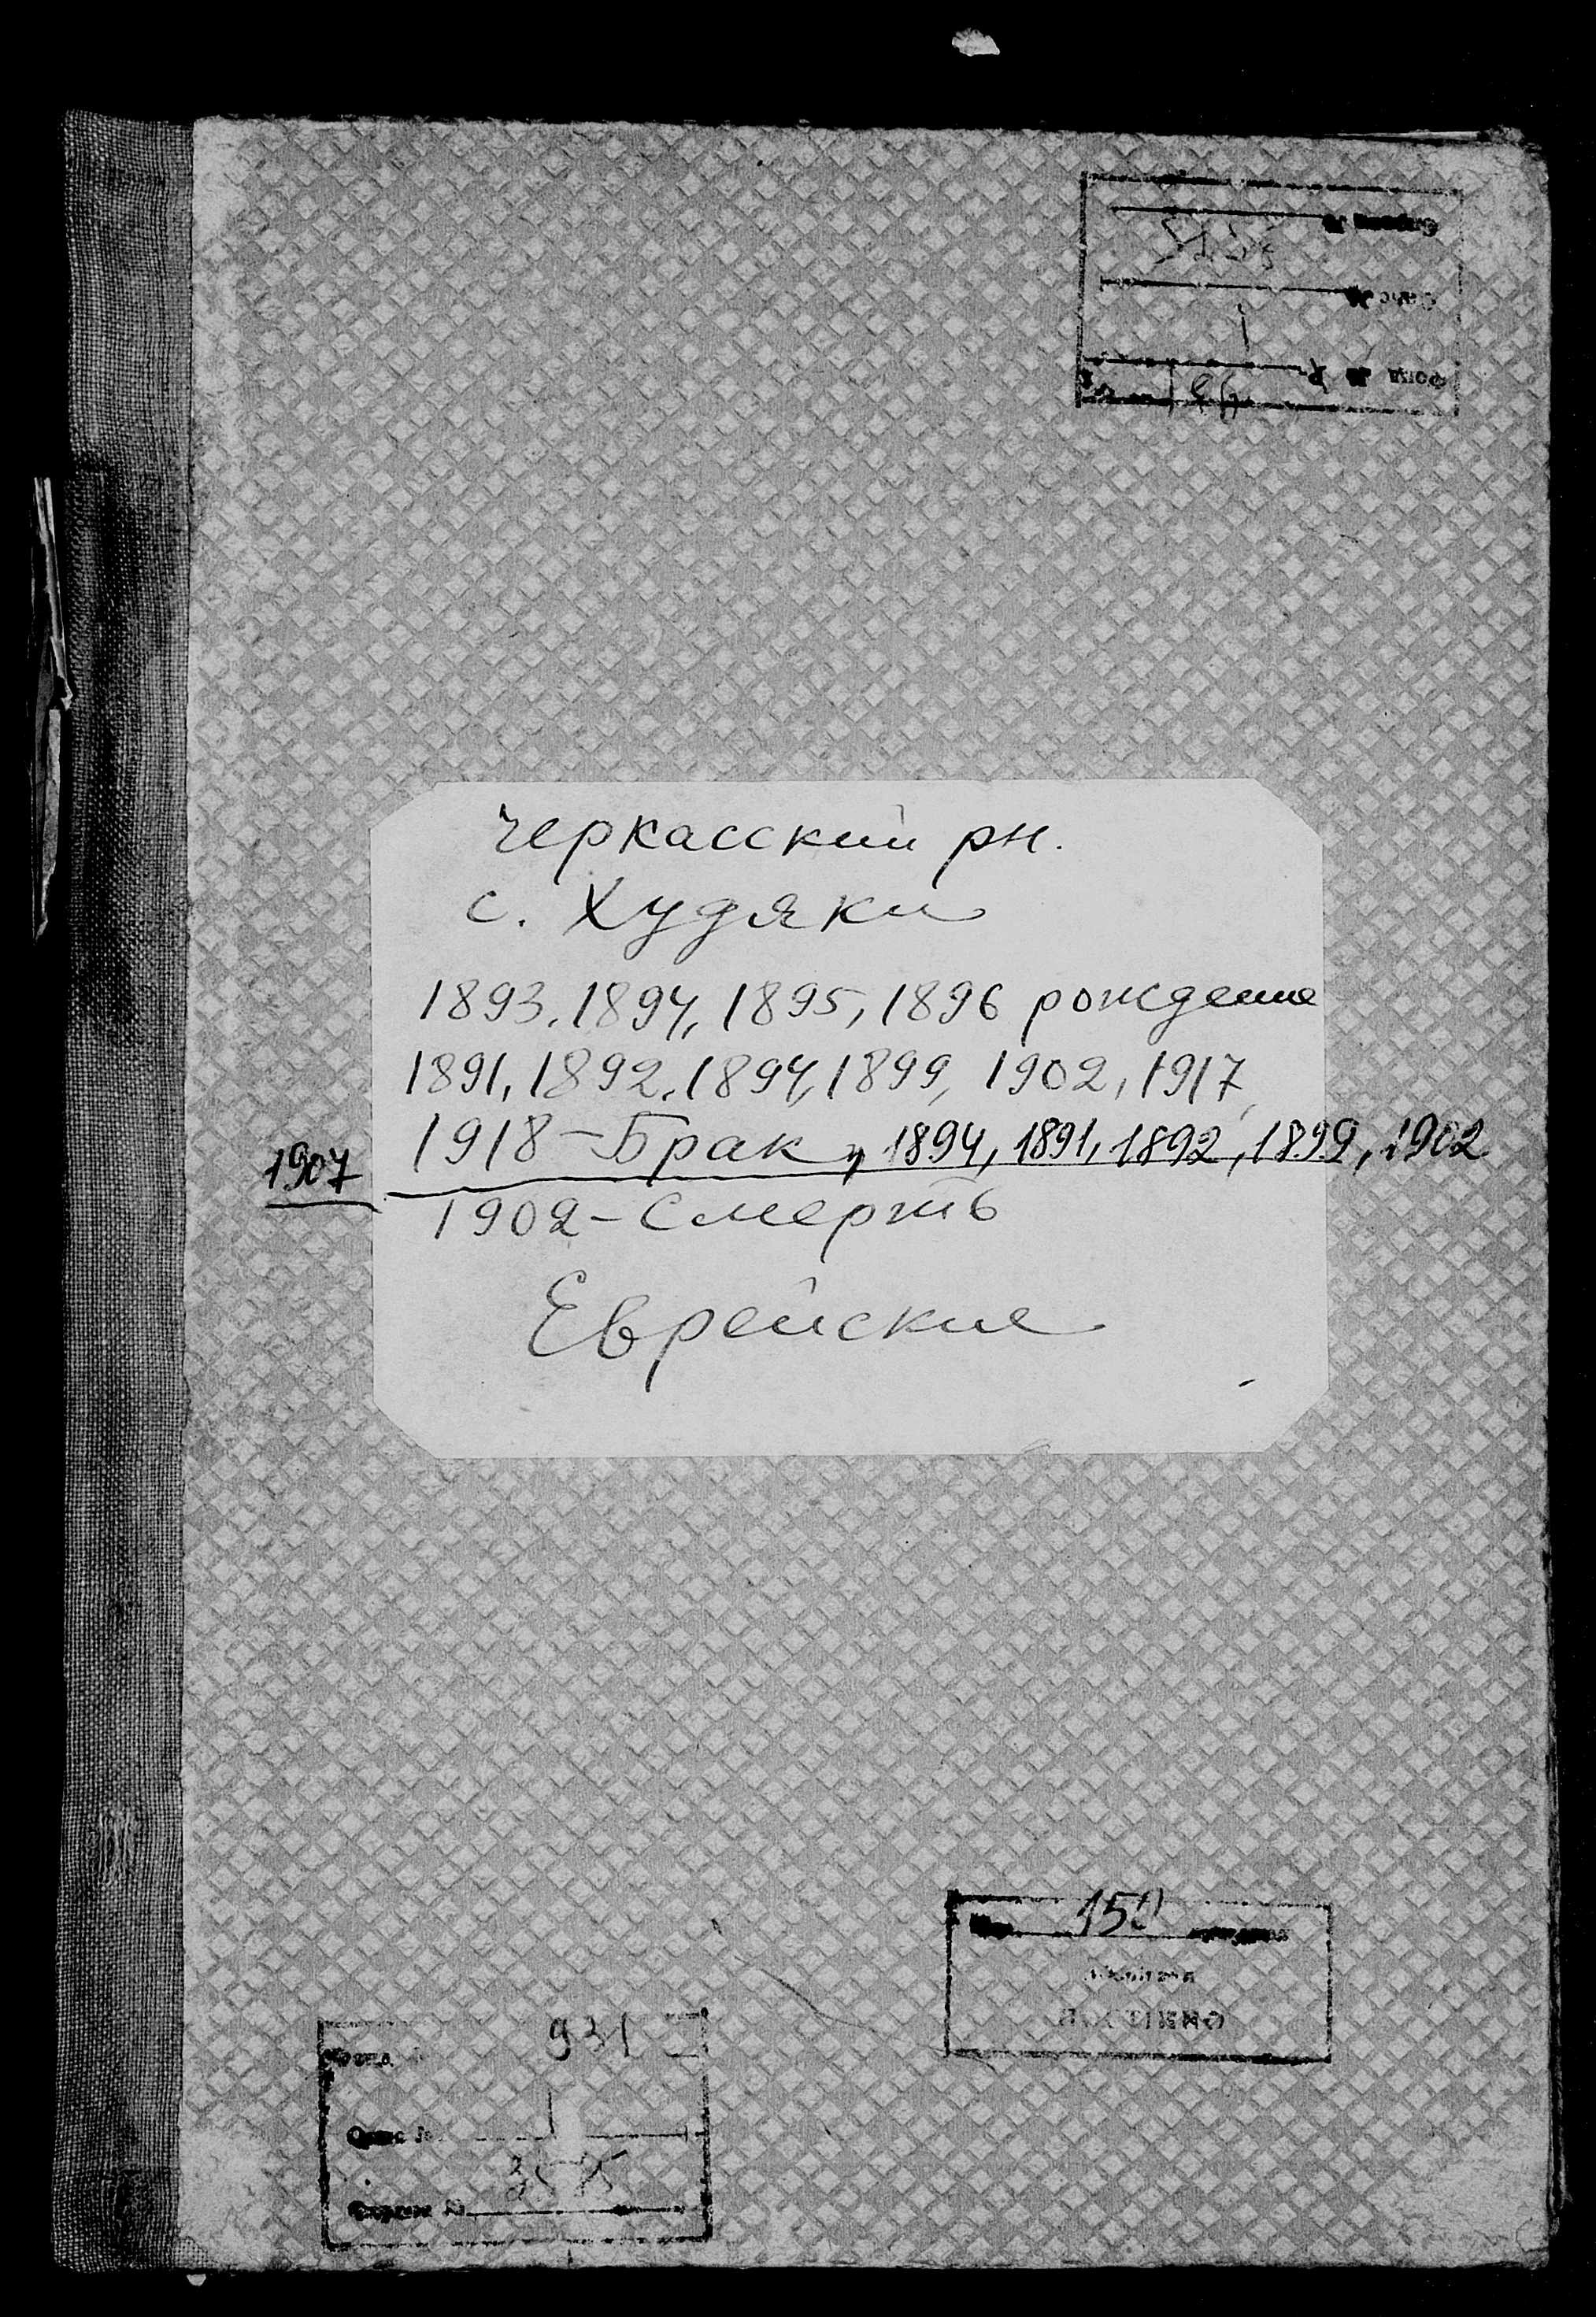 Черкасский рн.
с. Худяки
1893, 1894, 1895, 1896 рождение
1891, 1892, 1894, 1899, 1902, 1917,
1918 - Брак, 1894, 1891, 1892, 1899, 1902
1907
1902 - Смерть
Еврейские
150
931
Опис
1
Фонд №